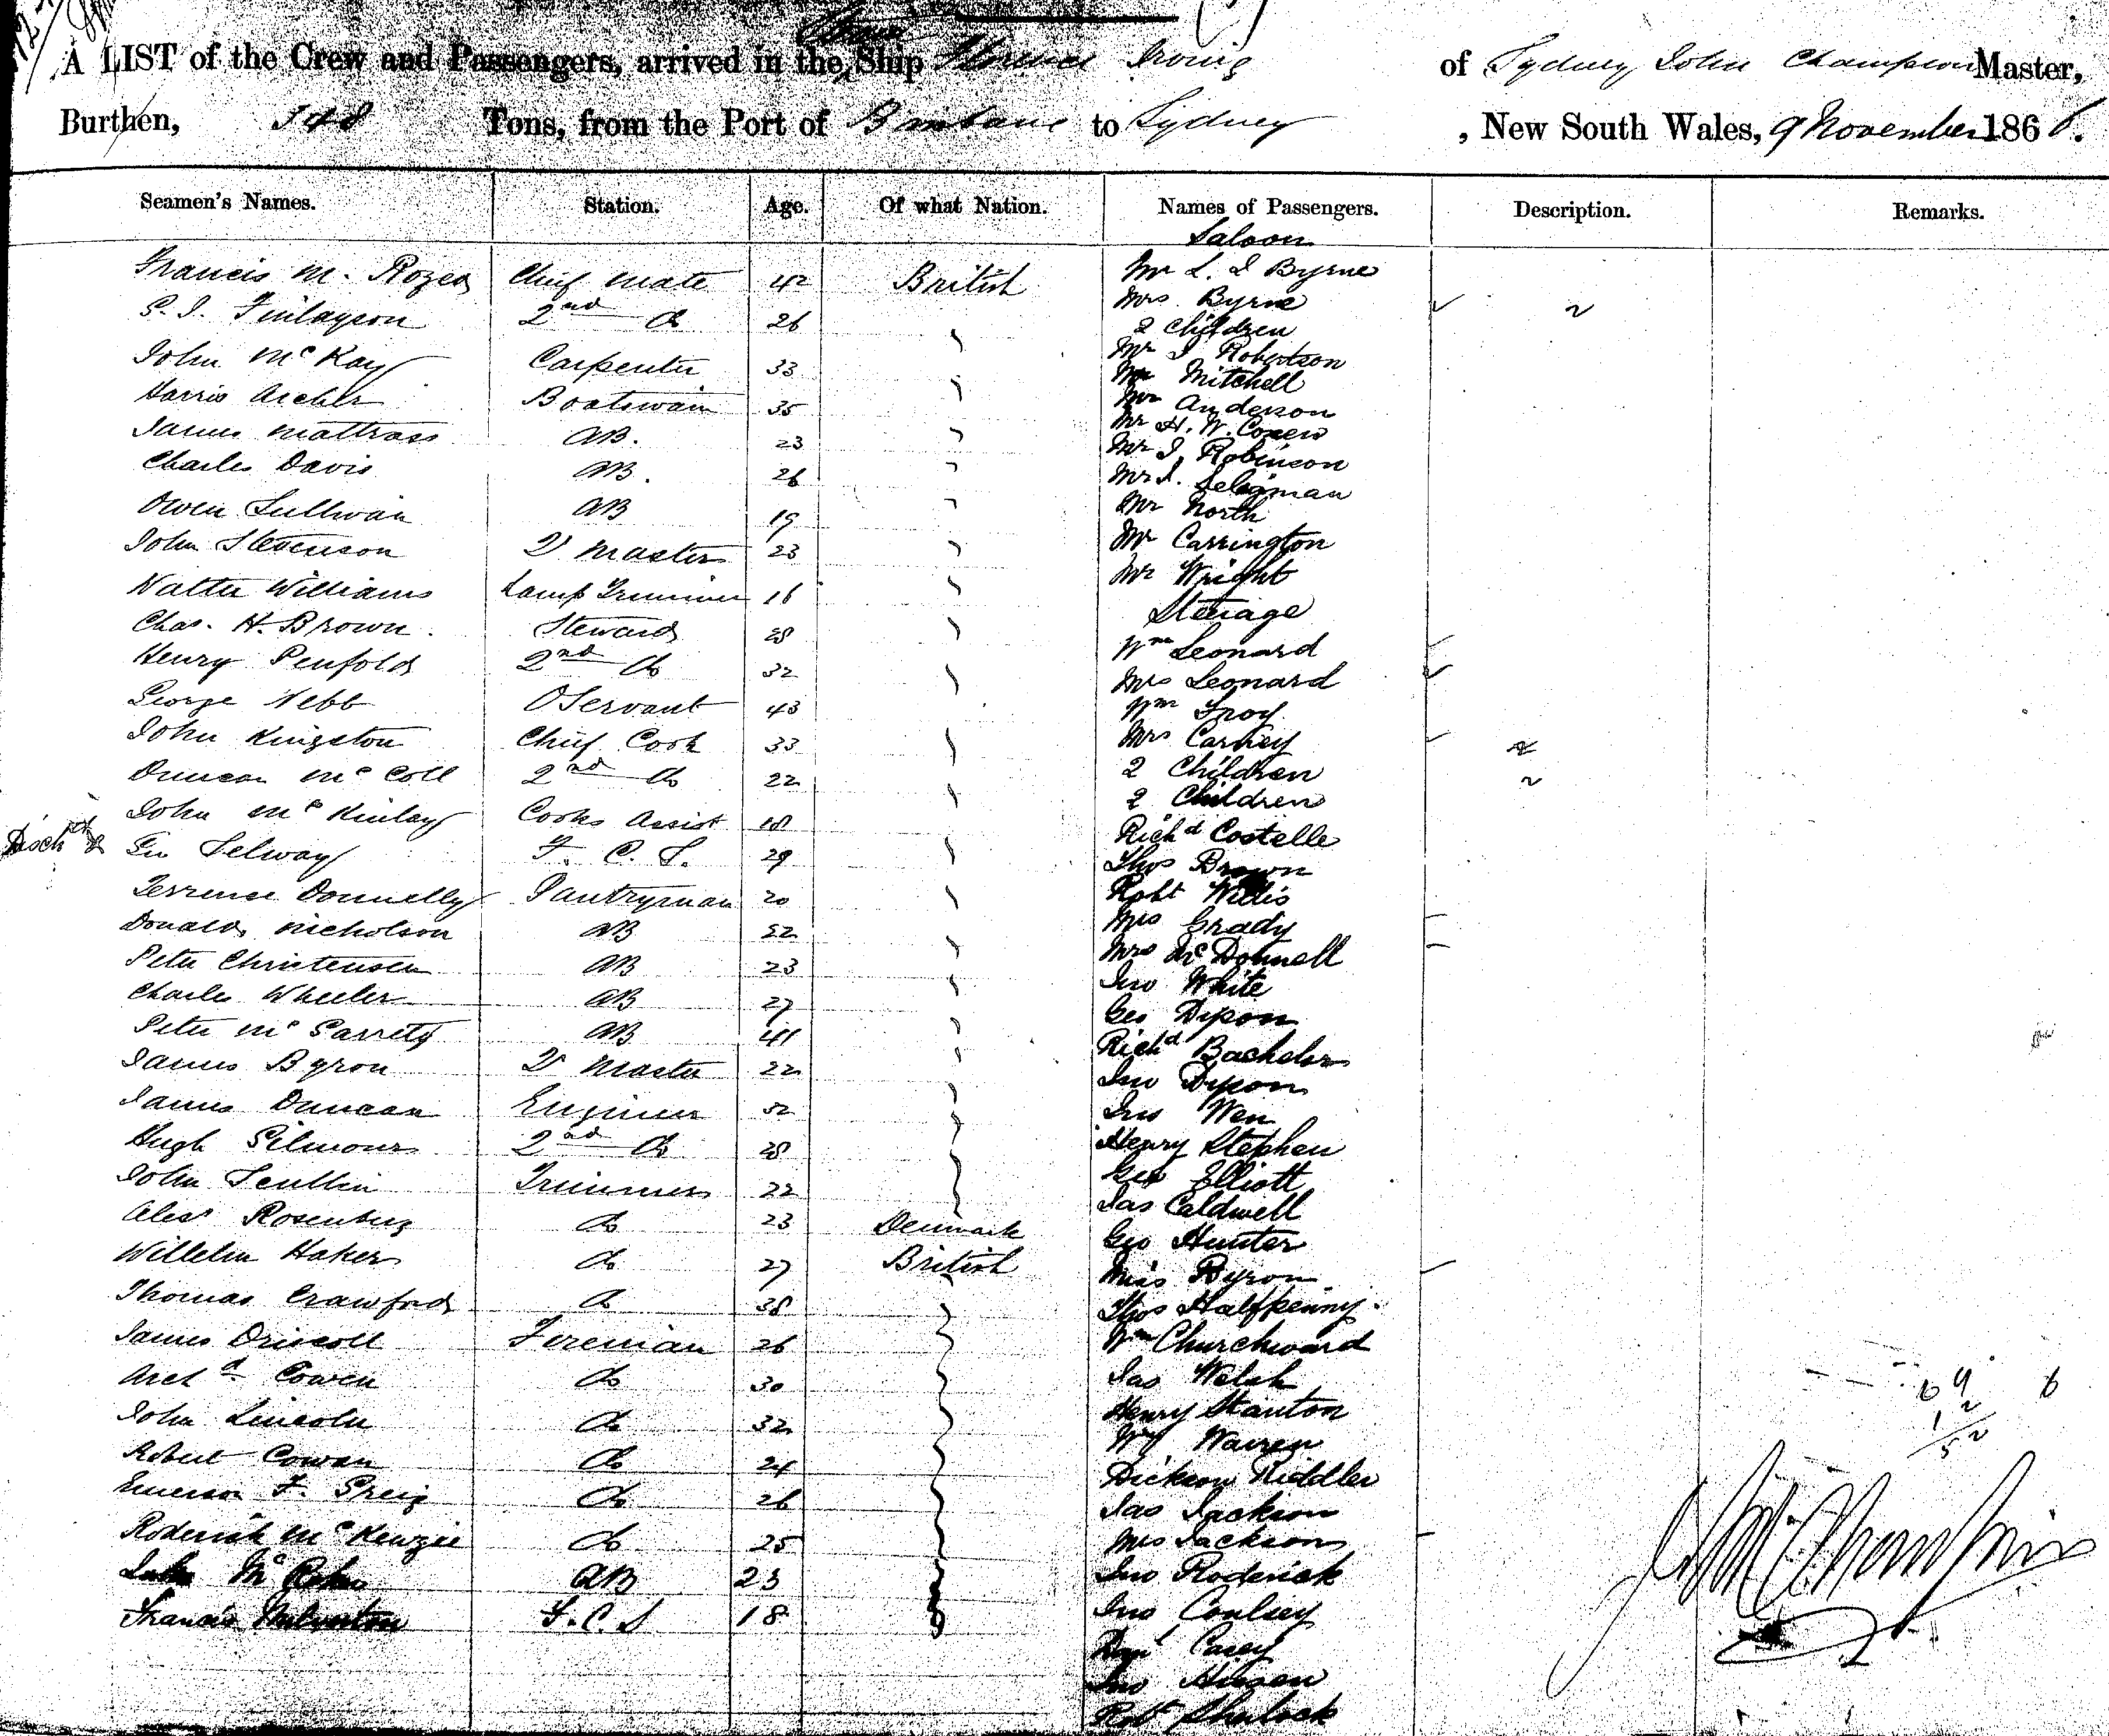 A LIST of the Crew and Passengers, arrived in the Ship Florence Irving of Sydney John Champion Master,
Burthen, 348 Tons, from the Port of Brisbane to Sydney, New South Wales, 9 November 1866.
Seamen's Names. Station. Age. Of what Nation. Names of Passengers. Description. Remarks.
Saloon
Francis M. Rozea Chief Mate 42 British Mr L. I Byrne
Mrs Byrne
Finlayson 2nd Do 26 2 Children
Mr J Robertson
John McKay Carpenter 33 Mr Mitchell
Harris Archer Boatswain 35 Mr Anderson
Mr H. W. Coxen
James Mattrass AB. 23 Mr J. Robinson
Charles Davis AB. 26 Mr J. Seligman
Owen Sullivan AB 19 Mr North
John Stevenson Q Master 23 Mr Carrington
Mr Wright
Walter Williams Lamp Trimmer 16 Steerage
Chas. H. Brown Steward 28 Wm Leonard
Henry Penfold 2nd Do 32 Mrs Leonard
George Webb O Servant 43 Wm Troy
John Kingston Chief Cook 33 Mrs Carney
Duncan McColl 2nd Do 22 2 Children
2 Children
John McKinlay Cooks Assist 18 Richd Costelle
Disch Geo Selway F. C. S. 29 Thos Brown
Terrence Donnelly Pantryman 20 Robt Willis
Donald Nicholson AB 22 Mrs Grady
Peter Christensen AB 23 Mrs McDonnell
Jno White
Charles Wheeler AB 27 Geo Dixon
Peter McGarrity AB 41 Richd Bachelor
James Byron Q Master 22 Jno Dixon
James Duncan Engineer 32 Jno Wen
Hugh Gilmour 2nd Do 28 Henry Stephen
Geo Elliott
John Scullin Trimmer 22 Jas Caldwell
Alexr Rosenberg Do 23 Denmark Geo Hunter
Willelm Haker Do 27 British Miss Byron
Thomas Crawford Do 38 Thos Halfpenny
James Driscoll Fireman 26 Wm Churchward
Archd Cowen Do 30 Jas Welsh
John Lincoln Do 32 Henry Stanton
Wm Warren
Robert Cowan Do 24 Dickson Riddler
Emerson F. Greig Do 26 Jas Jackson
Roderick McKenzie Do 25 Mrs Jackson
AB 23 Jno Roderick
Francis F.C.S 18 Jno Coulsey
Casey
Jno
Robt